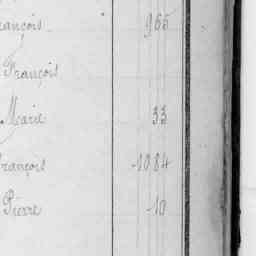 rançois 965
François
Marie 33
François 1084
Pierre 10